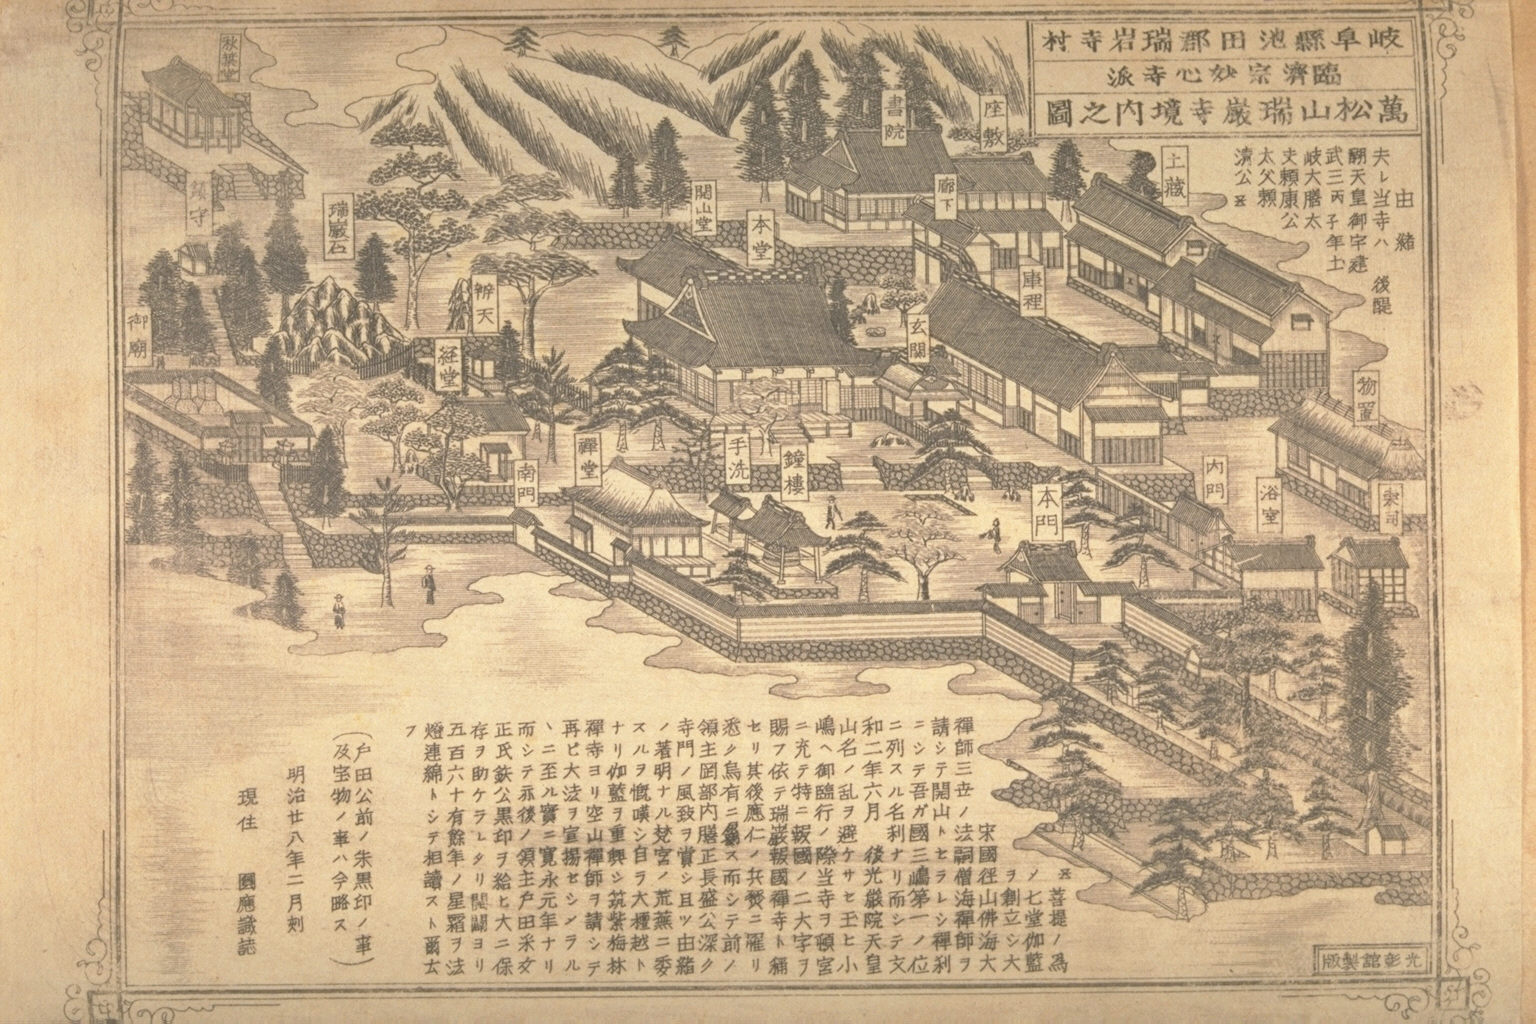 岐阜縣池田郡瑞岩寺村
臨濟宗妙心寺派
萬松山瑞巌寺境内之圖
由緒
夫レ当寺ハ 後醍
醐天皇御宇建
武三丙子年土
岐大膳太
夫頼康公
太父頼
清公ノ
菩提ノ為
ノ七堂伽藍
ヲ創立シ大
宋國径山佛海大
禪師三世ノ法詞僧海禪師ヲ
請シテ開山トセラレシ禪利
ニシテ吾ガ國三嶋第一ノ位
ニ列スル名利ナリ而シテ文
和二年六月 後光嚴院天皇
山名ノ乱ヲ避ケサセ玉ヒ小
嶋ヘ御臨行ノ際当寺ヲ頓宮
ニ充テ特ニ報國ノ二大字ヲ
賜フ依テ瑞巌報國禪寺ト稱
セリ其後應仁ノ兵燹ニ罹リ
悉ク烏有ニ歸ス而シテ前ノ
領主岡部内膳正長盛公深ク
寺門ノ風致ヲ賞シ且ツ由緒
ノ著明ナル梵宮ノ荒蕪ニ委
スルヲ慨嘆シ自ラ大檀越ト
ナリ伽藍ヲ重興シ筑紫梅林
禪寺ヨリ空山禪師ヲ請シテ
再ビ大法ヲ宣揚セシメラル
ヽニ至ル實ニ寛永元年ナリ
而シテ亦後ノ領主戸田采女
正氏鉄公黒印ヲ給ヒ大ニ保
存ヲ助ケラレタリ開闢ヨリ
五百六十有餘年ノ星霜ヲ法
燈連綿トシテ相讀スト爾云
フ
(戸田公前ノ朱黒印ノ事
及宝物ノ事ハ今略ス)
明治廿八年二月刻
現住 圓應識誌
秋葉堂
鎮守
瑞巌石
御廟
辨天
経堂
開山堂
本堂
書院
座敷
廊下
土蔵
庫裡
玄關
物置
南門
禪堂
手洗
鐘樓
本門
内門
浴室
東司
光彰館製版